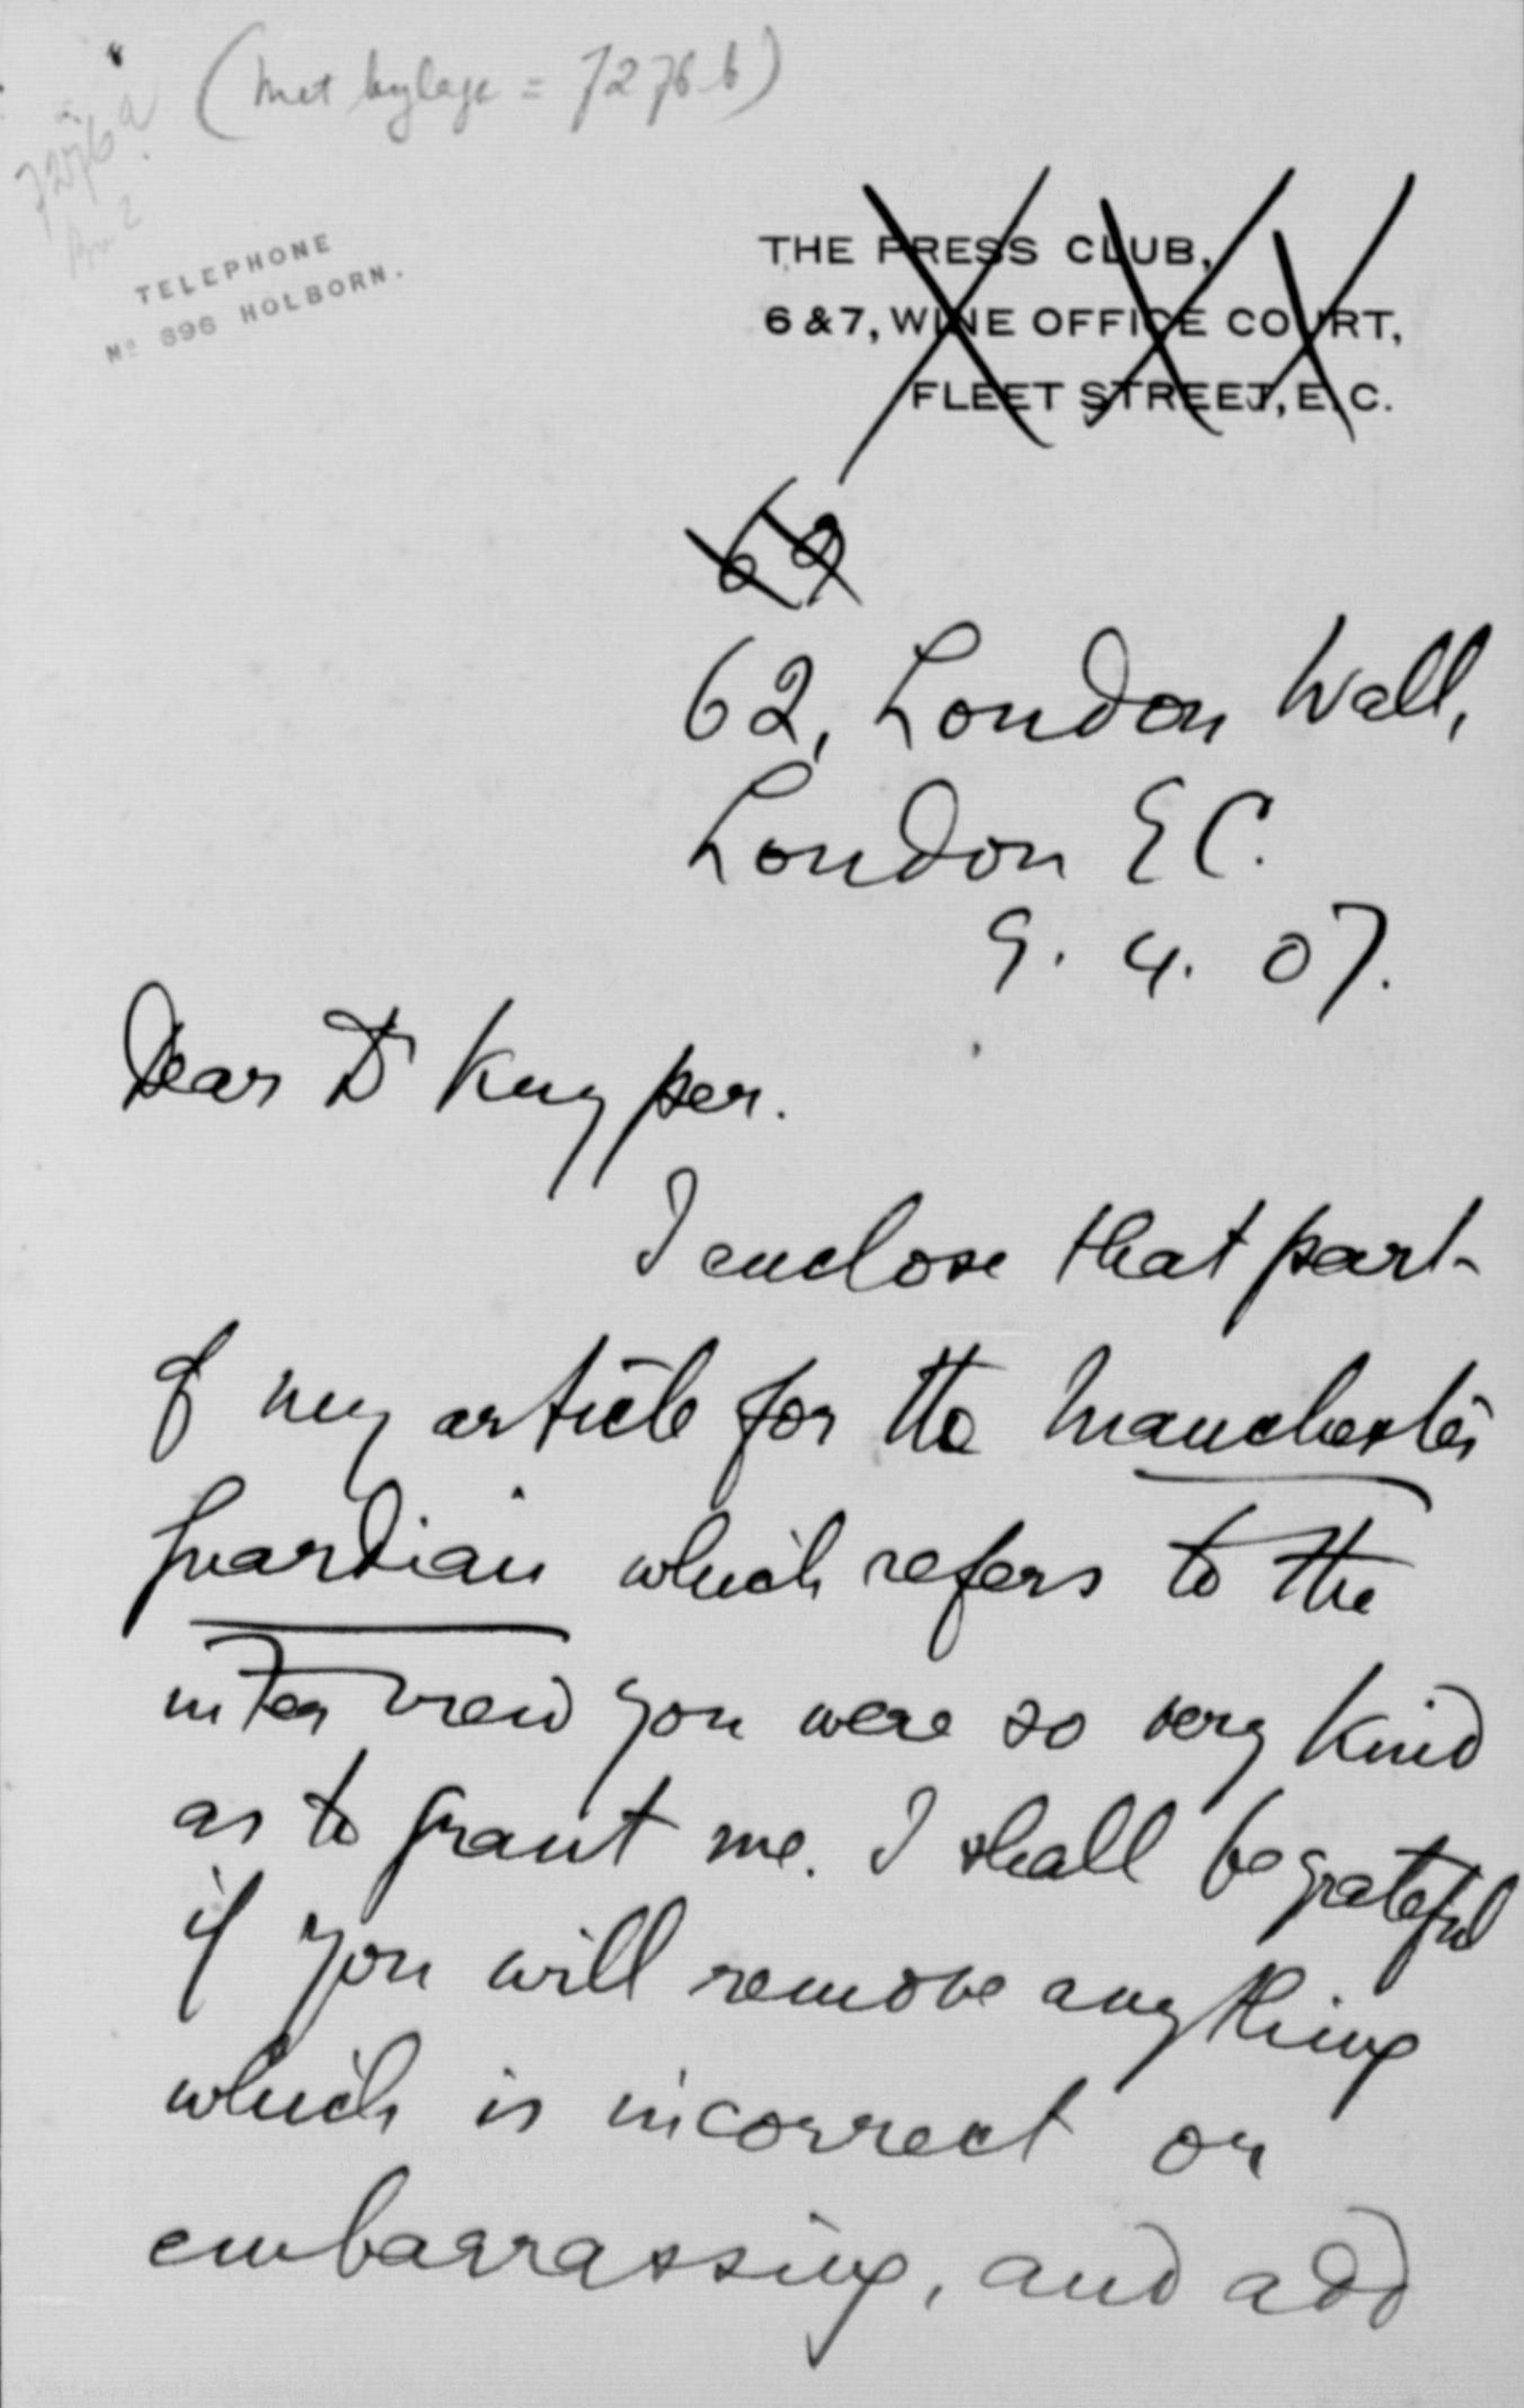 (met bylage = 7276 b)
7276 a
TELEPHONE
No 896 HOLBORN.
THE PRESS CLUB,
6 & 7, WINE OFFICE COURT,
FLEET STREET, E.C.
62, London Wall,
London E C.
9. 4. 07.
Dear Dr Kuyper.
I enclose that part
of my article for the Manchester
Guardian which refers to the
interview you were so very kind
as to grant me. I shall be grateful
if you will remove anything
which is incorrect or
embarrassing, and add